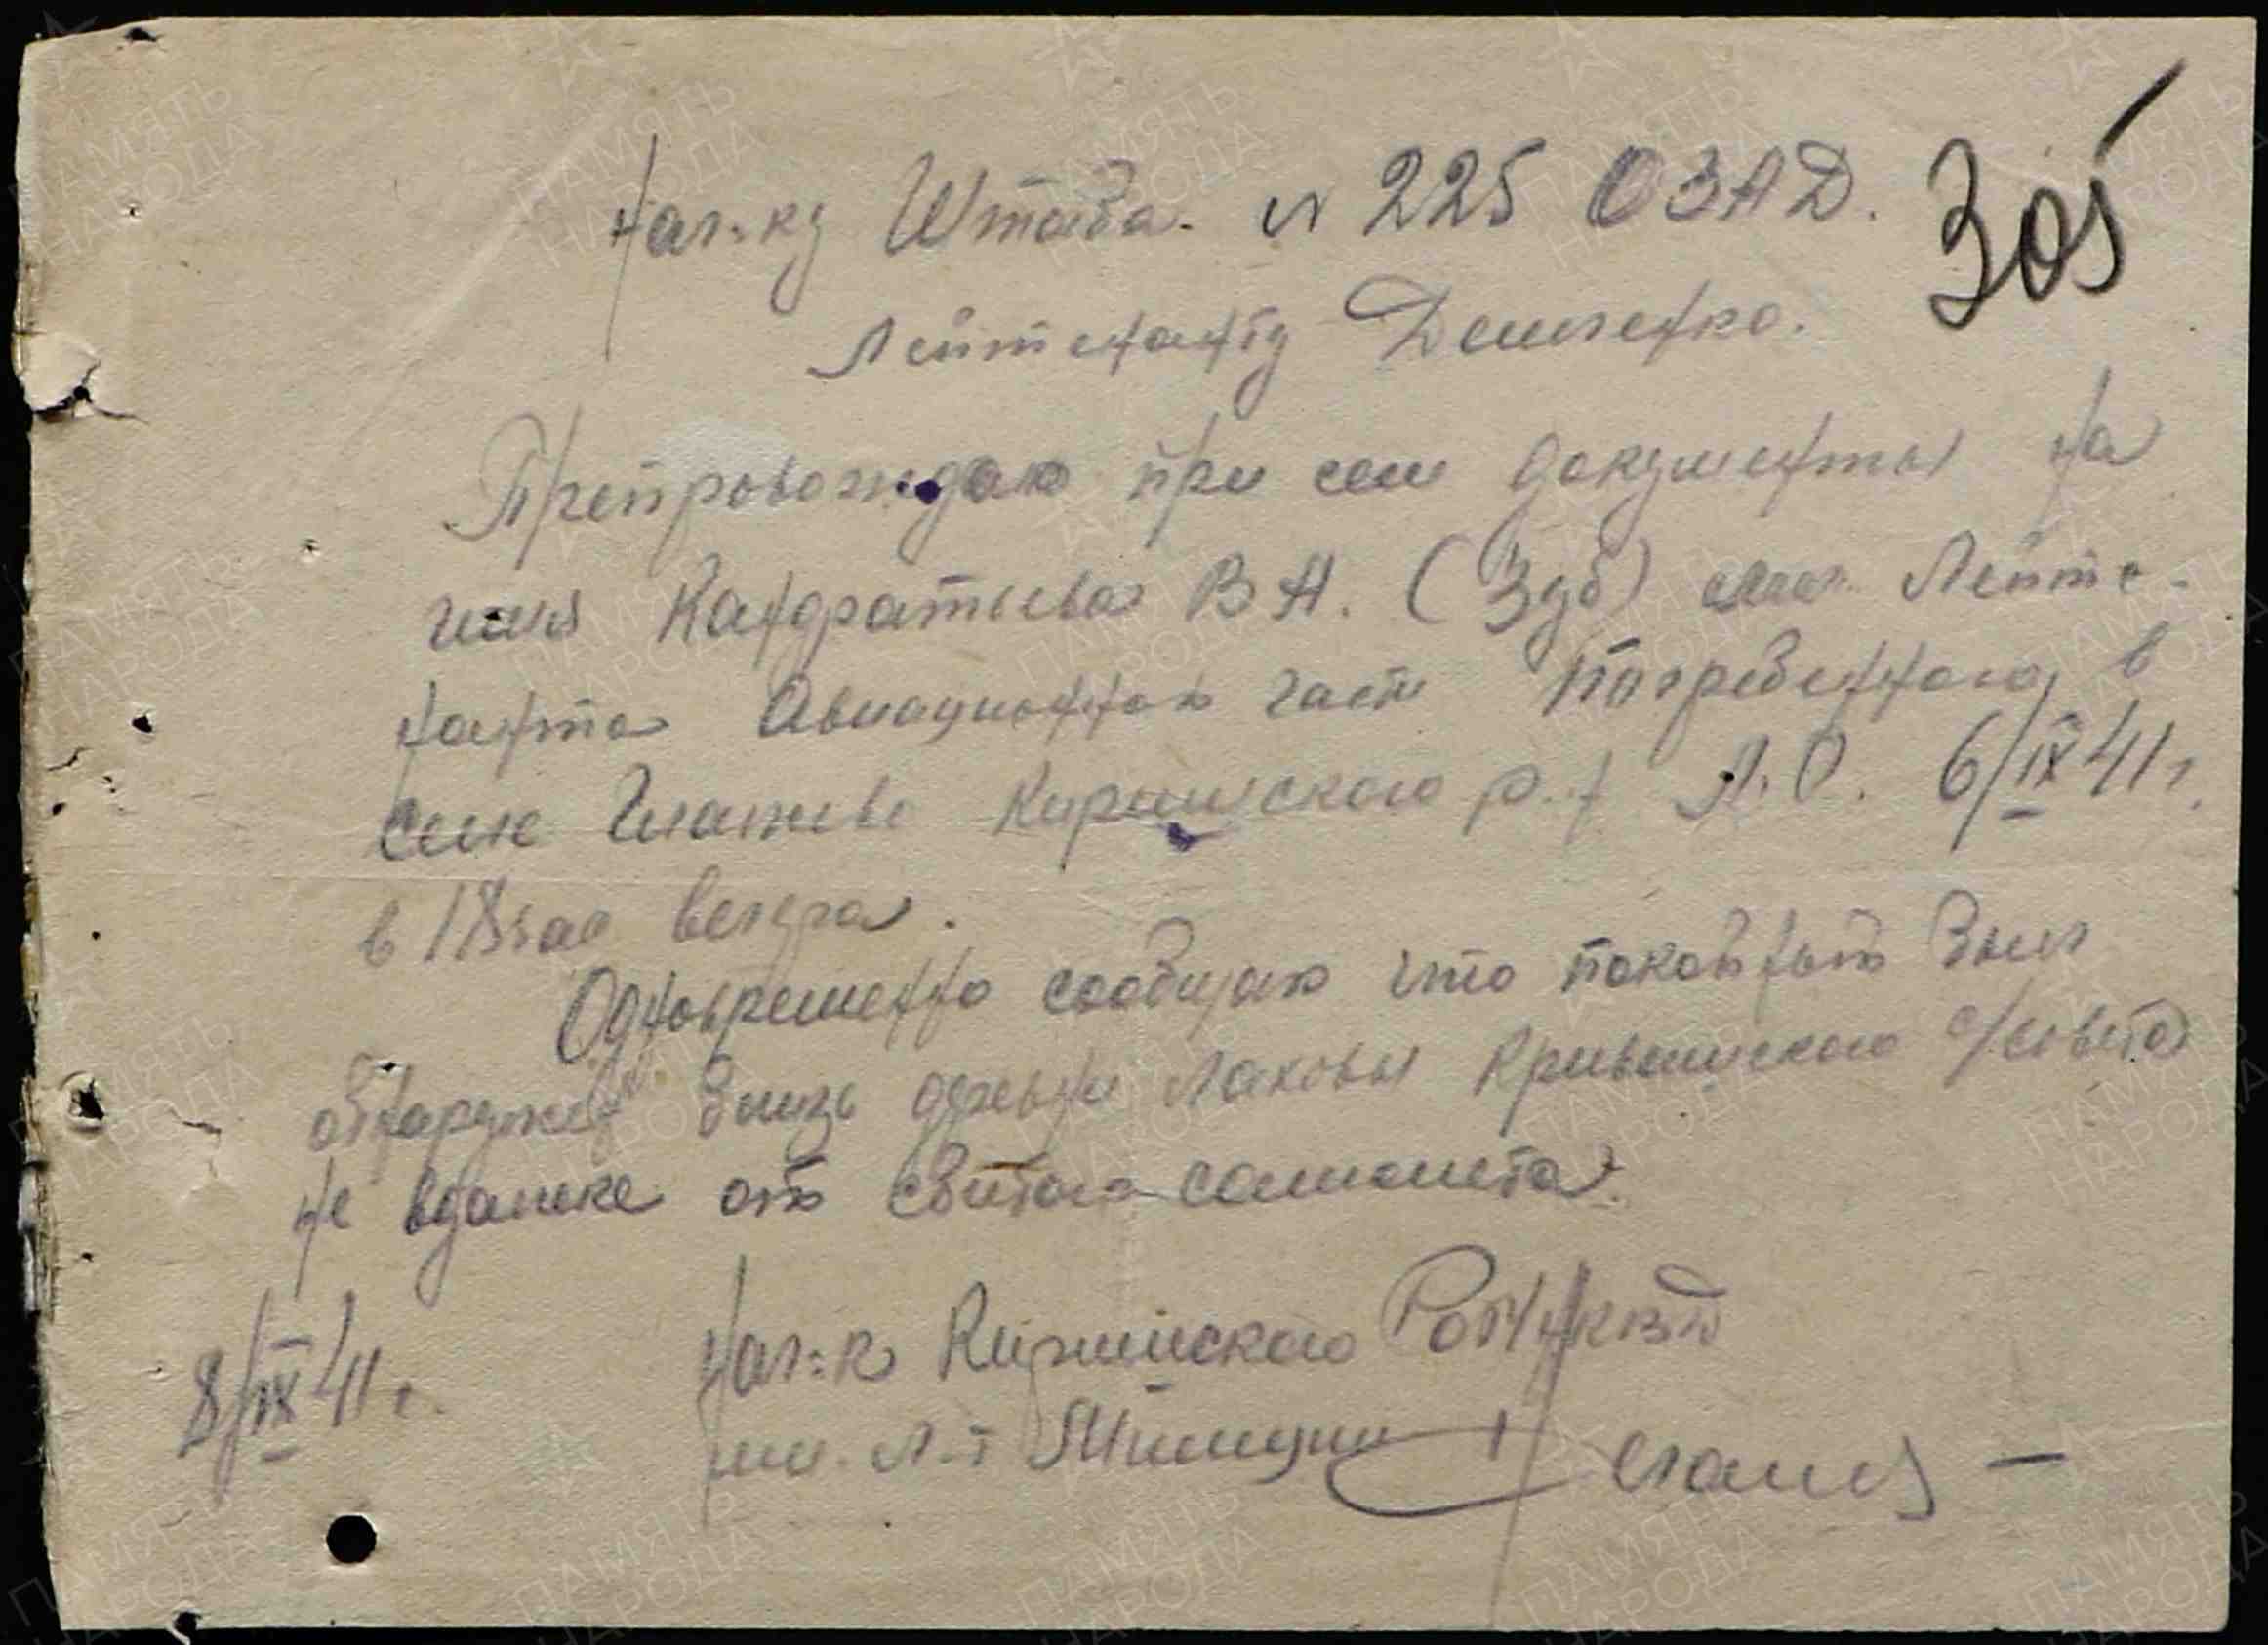 Нач-ку Штаба. № 225 ОЗАД. 305
Лейтенанту Демченко.
Препровождаю при сем документы на
имя Кандратьева В А. (Зуб) мл. Лейте-
нанта Авиационной части Погребенного в
селе Глажево Киришского р-н Л.О. 6/IX 41 г.
в 18 час вечера.
Одновременно сообщаю что покойный был
обнаружен близь деревни Лаховы Кривинского с/совета
не вдалеке от сбитого самолета.
8/IX 41 г. Нач-к Киришского РО НКВД
мл. л-т